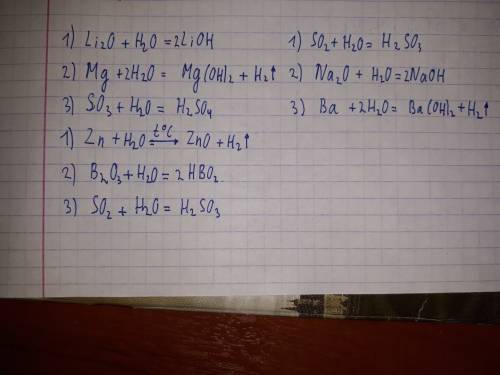 1) Li₂O + H₂O = 2LiOH
2) Mg + 2H₂O = Mg(OH)₂ + H₂↑
3) SO₃ + H₂O = H₂SO₄
1) Zn + H₂O —t°C→ ZnO + H₂↑
2) B₂O₃ + H₂O = 2HBO₂
3) SO₂ + H₂O = H₂SO₃
1) SO₂ + H₂O = H₂SO₃
2) Na₂O + H₂O = 2NaOH
3) Ba + 2H₂O = Ba(OH)₂ + H₂↑